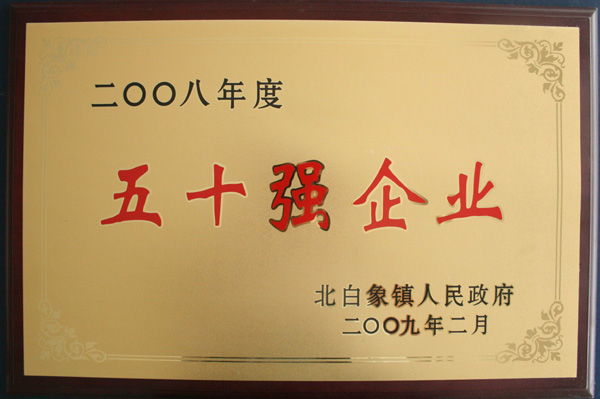 二〇〇八年度
五十强企业
北白象镇人民政府
二〇〇九年二月